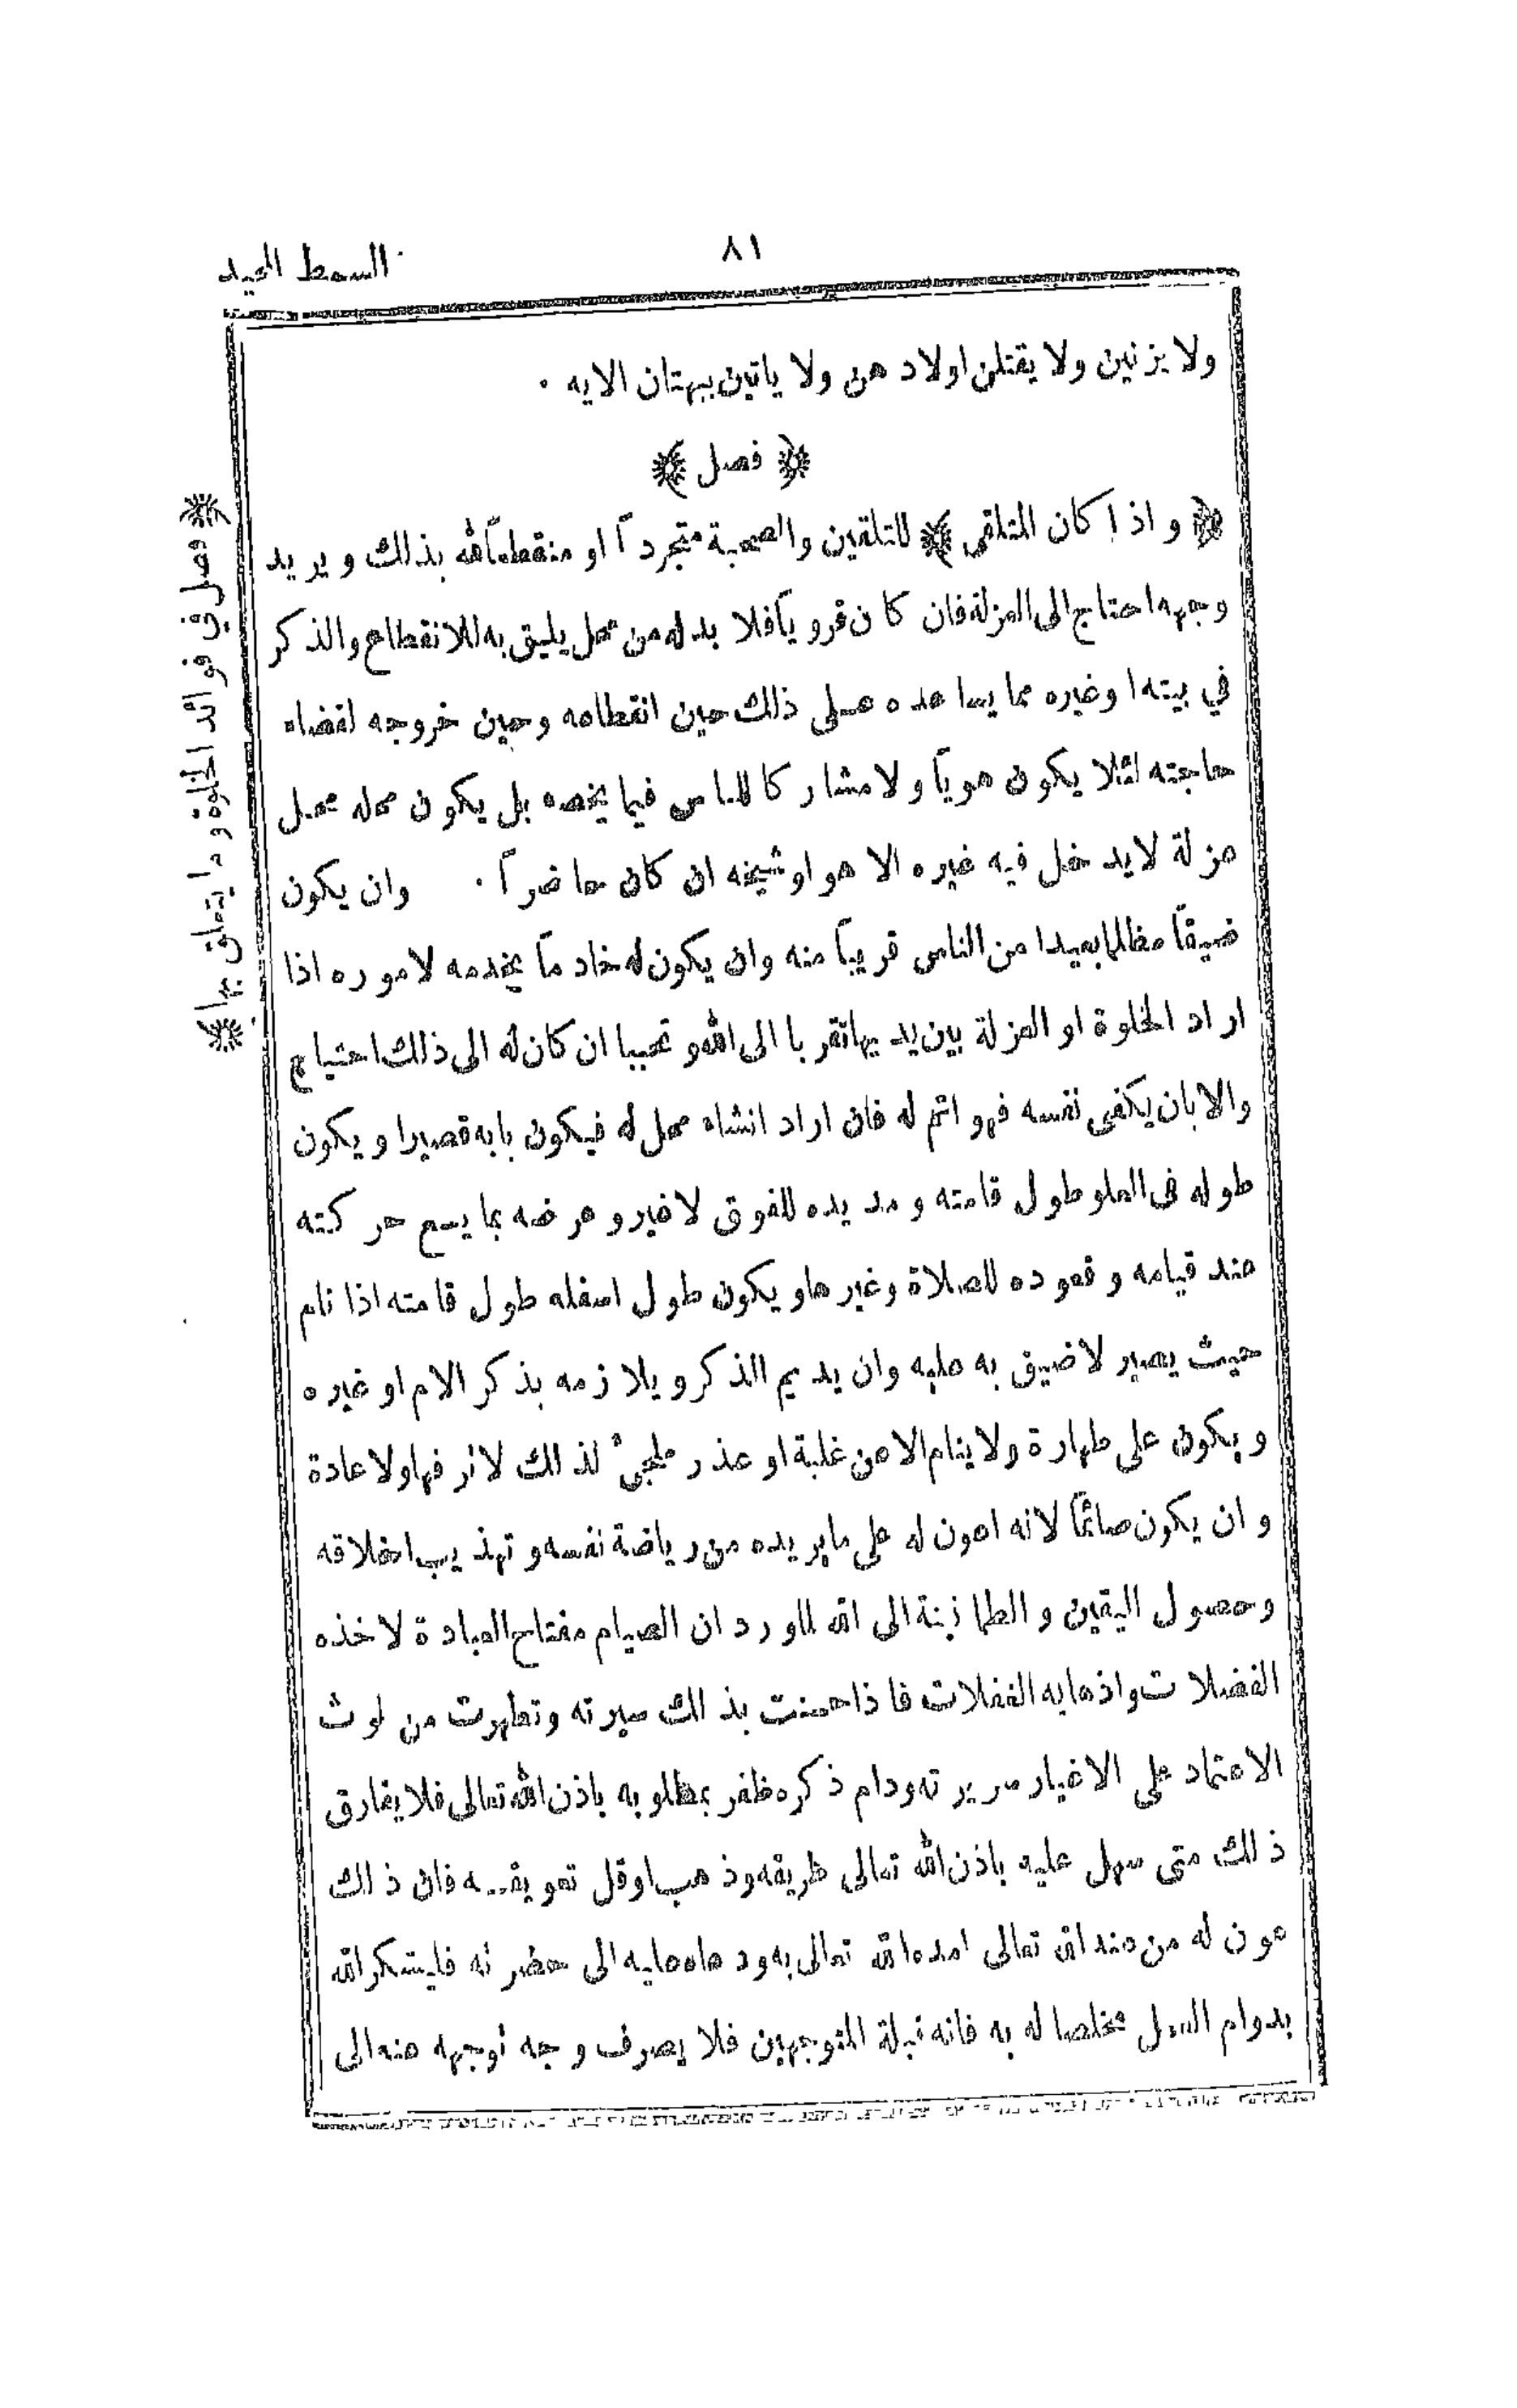 ٨١
السمط المجيد
ولا يزنين ولا يقتلن اولادهن ولا ياتين ببهتان الايه .
﴿ فصل ﴾
﴿ واذا كان المتلقى ﴾ للتلقين والصحبة متجرداً او منقطعاً لله بذلك ويريد
وجهه احتاج الى العزلة فان كان قروياً فلا بد له من محل يليق به للانقطاع والذكر
في بيته او غيره مما يساعده على ذلك حين انقطاعه وحين خروجه لقضاء
حاجته لئلا يكون هوياً ولا مشاركا للناس فيما يخصه بل يكون محله محل
عزلة لا يدخل فيه غيره الا هو او شيخه ان كان حاضراً . وان يكون
ضيقاً مظلما بعيدا من الناس قريباً منه وان يكون له خادماً يخدمه لاموره اذا
اراد الخلوة او العزلة بين يديها تقربا الى الله وتحببا ان كان له الى ذلك احتياج
والا بان يكفى نفسه فهو اتم له فان اراد انشاء محل له فيكون بابه قصيرا ويكون
طوله فى العلو طول قامته ومد يده للفوق لا غير وعرضه بما يسع حركته
عند قيامه وقعوده للصلاة وغيرها ويكون طول اسفله طول قامته اذا نام
حيث يصير لا ضيق به عليه وان يديم الذكر ويلازمه بذكر الاسم او غيره
ويكون على طهارة ولا ينام الا عن غلبة او عذر ملجئ لذلك لا ترفها ولا عادة
وان يكون صائماً لانه اعون له على ما يريده من رياضة نفسه وتهذيب اخلاقه
وحصول اليقين والطمانينة الى الله لما ورد ان الصيام مفتاح العبادة لاخذه
الفضلات واذهابه الغفلات فاذا حسنت بذلك سيرته وتطهرت من لوث
الاعتماد على الاغيار سريرته ودام ذكره ظفر بمطلوبه باذن الله تعالى فلا يفارق
ذلك متى سهل عليه باذن الله تعالى طريقه وذهب او قل تعويقه فان ذلك
عون له من عند الله تعالى امده الله تعالى به ودعاه عليه الى حضرته فليشكر الله
بدوام العمل مخلصا له به فانه قبلة المتوجهين فلا يصرف وجه توجهه عنه الى
﴿ فصل في فوائد الخلوة وما يتعلق بها ﴾